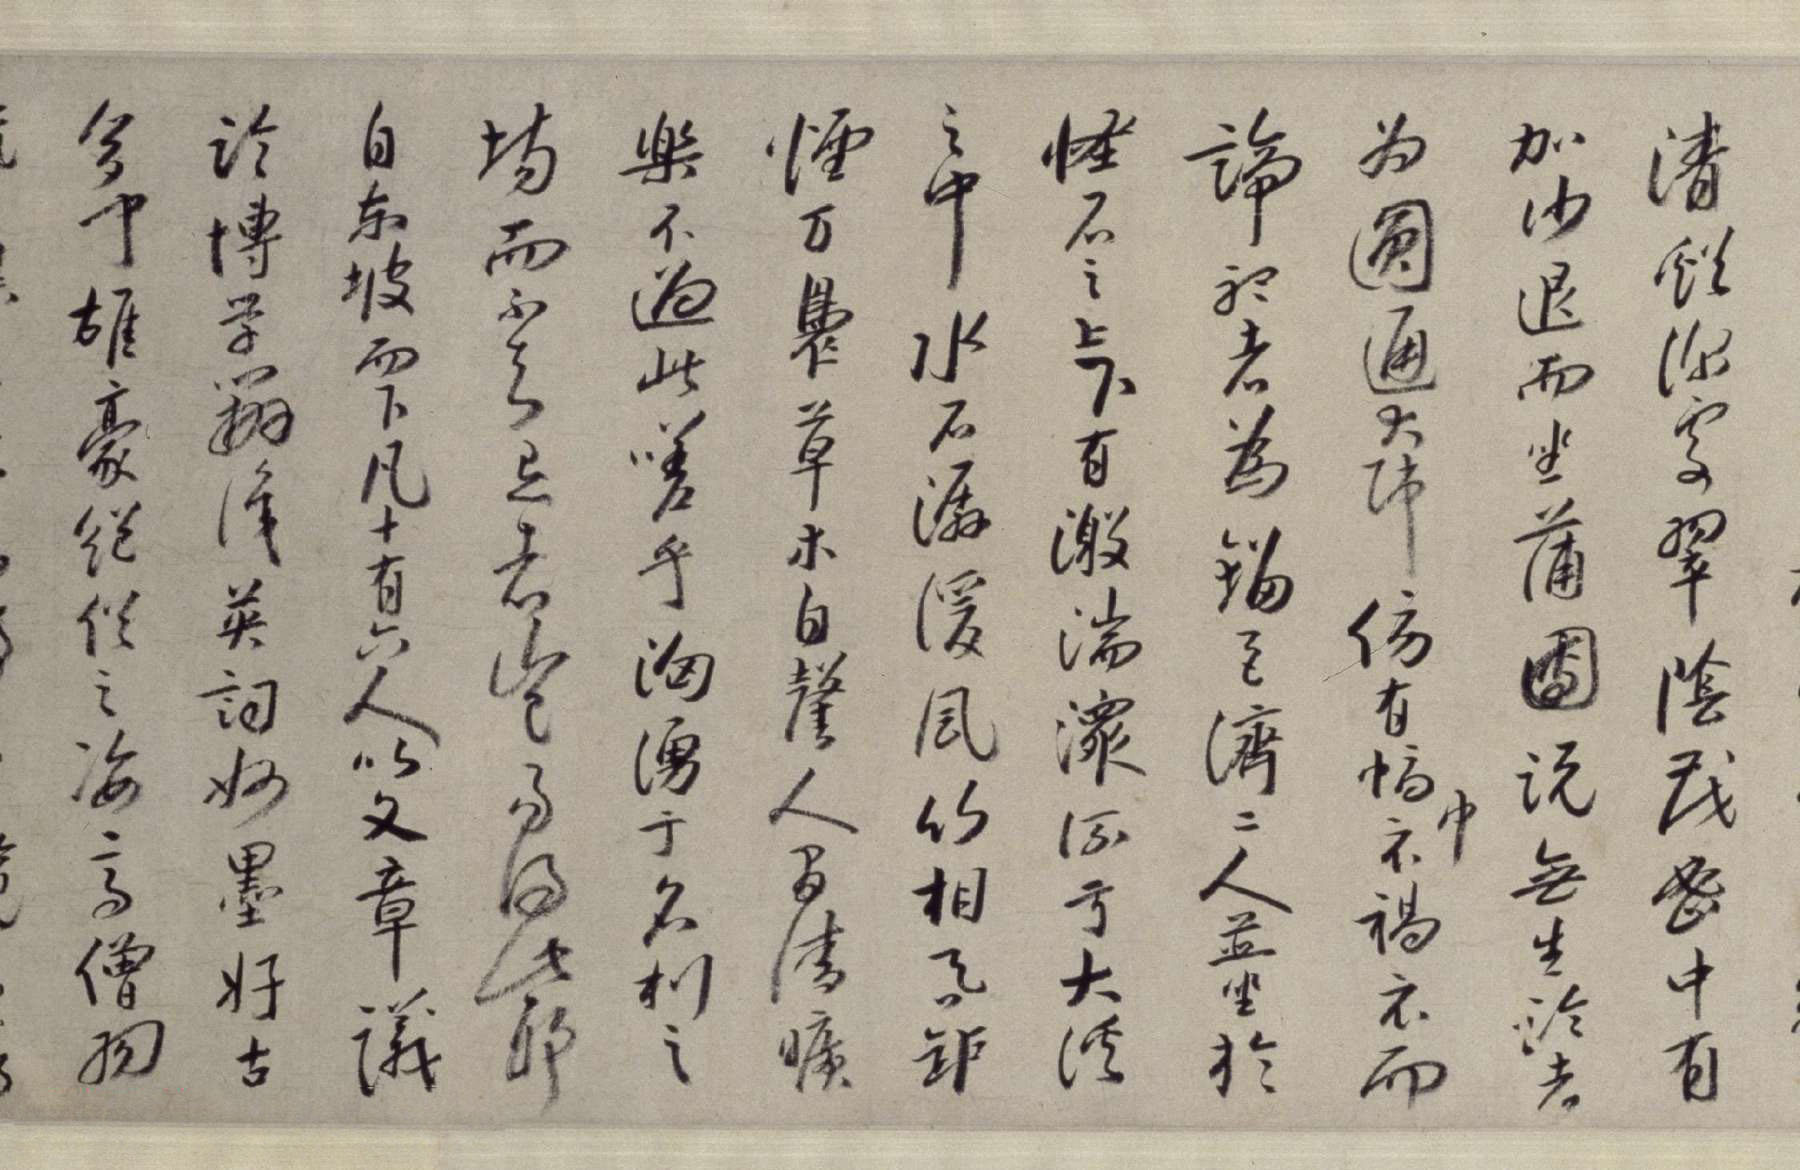 清谿深處翠陰茂密中有
加沙退而坐蒲團說無生論者
为圓通大師仿有幅巾衣褐衣而
諦聽者為劉巨濟二人並坐於
怪石之上下有激湍潨流于大溪
之中水石潺湲風竹相吞爐
煙方裊草木自馨人間清曠
樂不過此嗟乎洶湧于名利之
場而不知退者豈易得此耶
自東坡而下凡十有六人以文章議
論博學辨識英詞妙墨好古
多聞雄豪絕俗之姿高僧羽